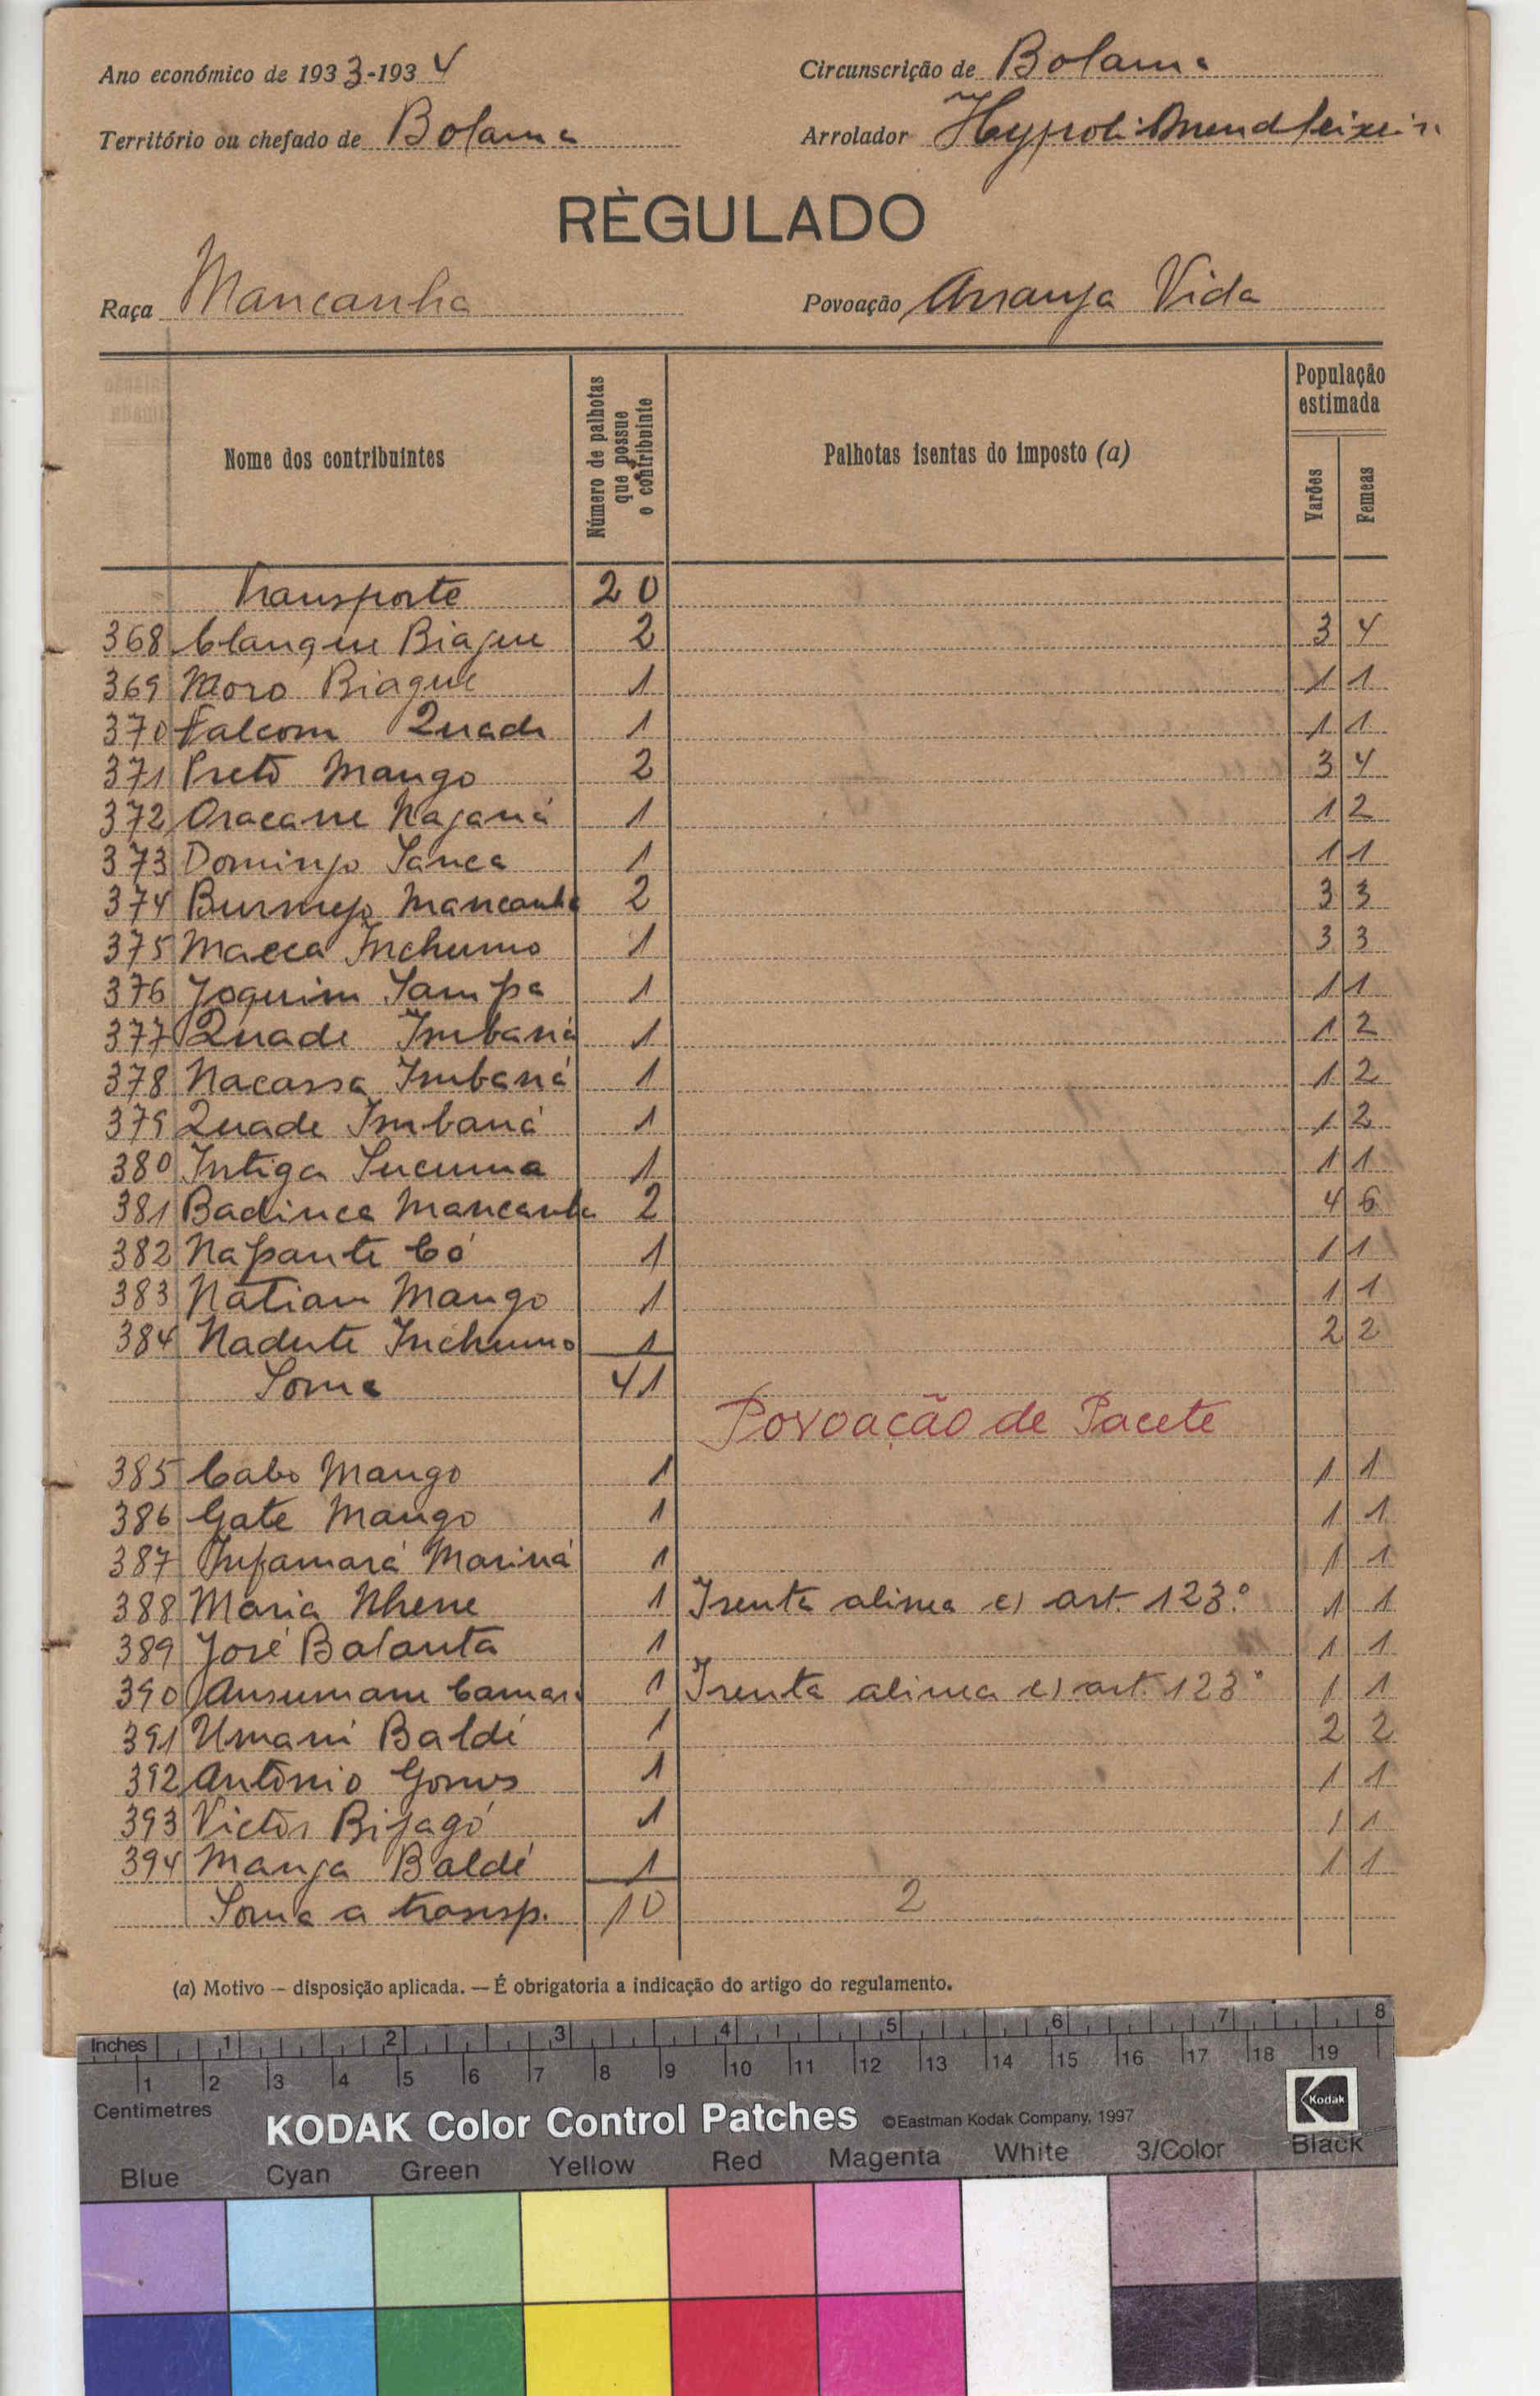 Ano económico de 1933-1934
Circunscrição de Bolama
Território ou chefado de Bolama
Arrolador Hypoli
RÈGULADO
Raça Mancanha
Povoação Arranja Vida
Nome dos contribuintes
Número de palhotas que possue o contribuinte
Palhotas isentas do imposto (a)
População estimada
Varões
Femeas
Transporte 20
368 Clangue Biague 2 3 4
369 Moro Biague 1 1 1
370 Falcom Quade 1 1 1
371 Preto Mango 2 3 4
372 Oracane Naganá 1 1 2
373 Domingo Sanca 1 1 1
374 Mancanha 2 3 3
375 Macca Inchumo 1 3 3
376 Joquim Sampa 1 1 1
377 Quade Imbaná 1 1 2
378 Nacassa Imbaná 1 1 2
379 Quade Imbaná 1 1 2
380 Intiga Sucuma 1 1 1
381 Badinca Mancanha 2 4 6
382 Napante Có 1 1 1
383 Natiam Mango 1 1 1
384 Nadute Inchumo 1 2 2
Soma 41
Povoação de Pacete
385 Cabo Mango 1 1 1
386 Gate Mango 1 1 1
387 Infamará Mariná 1 1 1
388 Maria Nhene 1 Isenta alinea c) art. 123.° 1 1
389 José Balanta 1 1 1
390 Ansumane Camará 1 Isenta alinea c) art. 123° 1 1
391 Umarú Baldé 1 2 2
392 António Gomes 1 1 1
393 Victor Bijagó 1 1 1
394 Manja Baldé 1 1 1
Soma a transp. 10 2
(a) Motivo — disposição aplicada. — É obrigatoria a indicação do artigo do regulamento.
Inches 1 2 3 4 5 6 7 8
1 2 3 4 5 6 7 8 9 10 11 12 13 14 15 16 17 18 19
Centimetres
KODAK Color Control Patches ©Eastman Kodak Company, 1997
Kodak
Blue Cyan Green Yellow Red Magenta White 3/Color Black